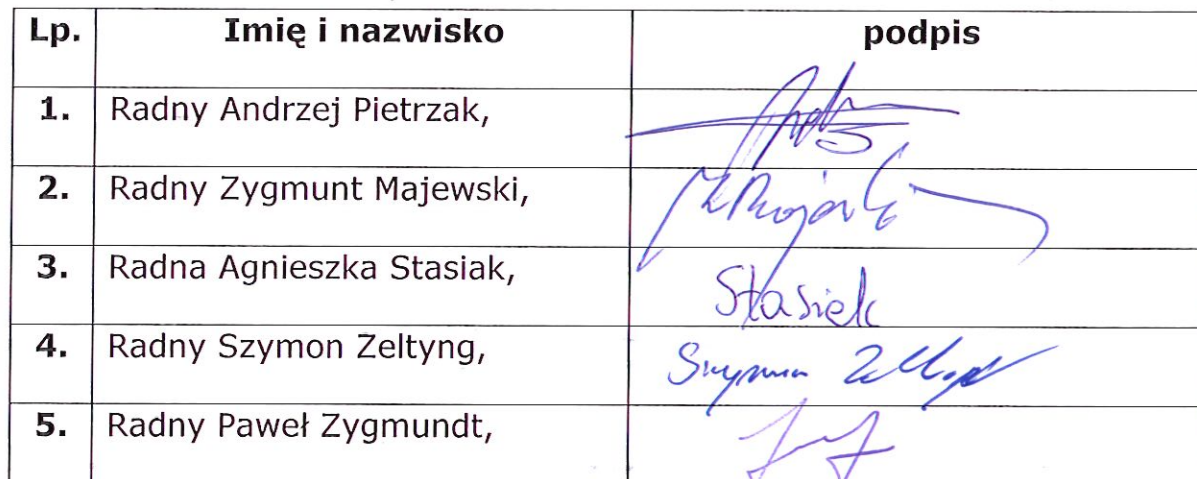 Lp. Imię i nazwisko podpis
1. Radny Andrzej Pietrzak,
2. Radny Zygmunt Majewski,
3. Radna Agnieszka Stasiak, Stasiek
4. Radny Szymon Zeltyng, Szymon
5. Radny Paweł Zygmundt,